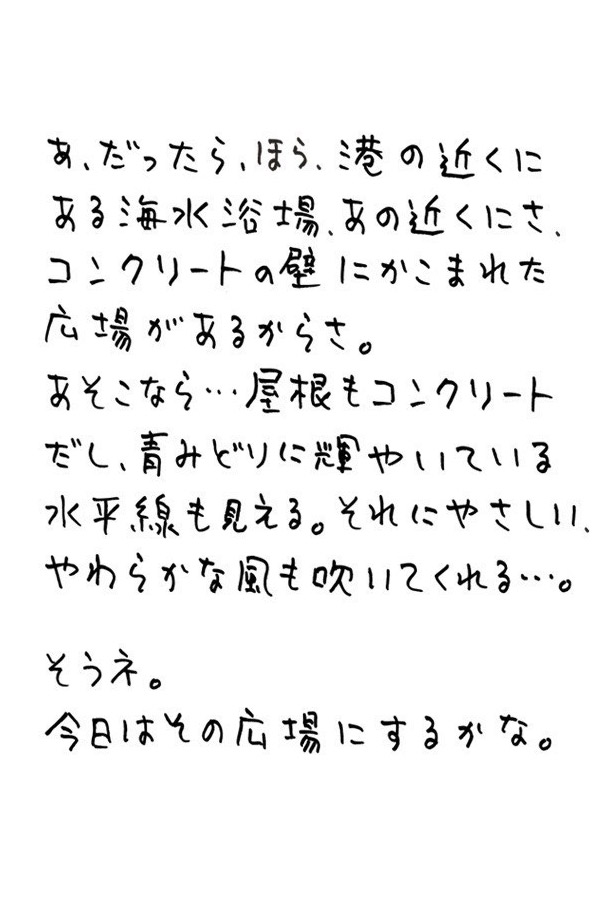 あ、だったら、ほら、港の近くに
ある海水浴場、あの近くにさ、
コンクリートの壁にかこまれた
広場があるからさ。
あそこなら…屋根もコンクリート
だし、青みどりに輝やいている
水平線も見える。それにやさしい、
やわらかな風も吹いてくれる…。
そうネ。
今日はその広場にするかな。